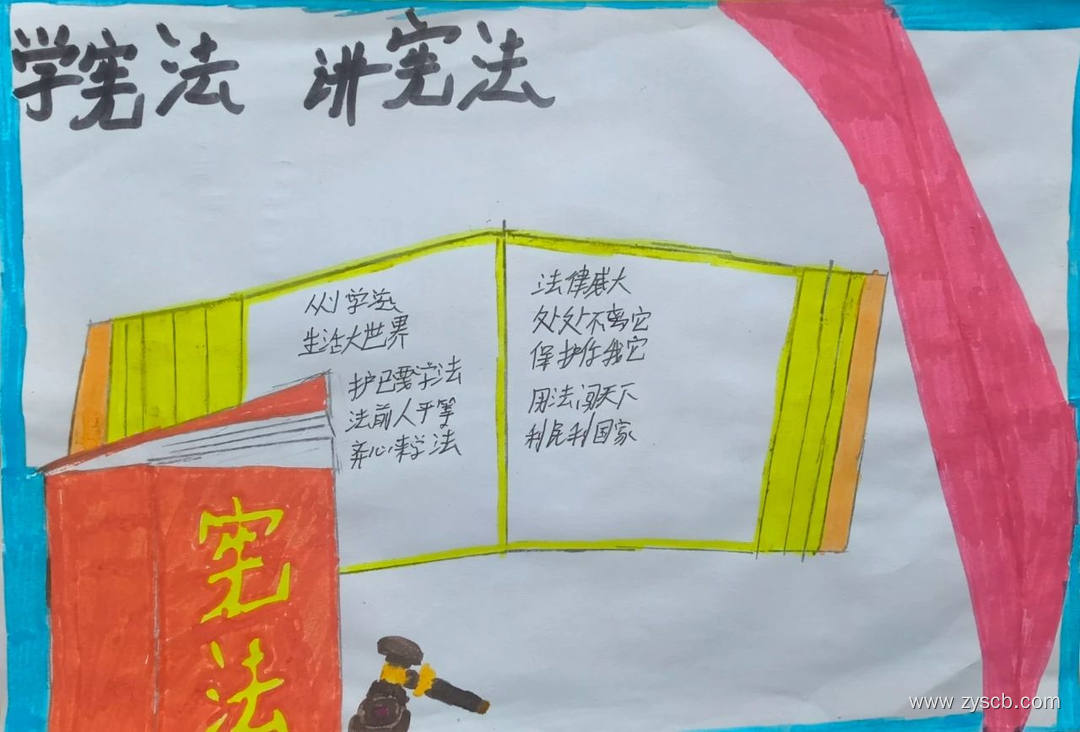 学宪法 讲宪法
从小学法
生活大世界
护己要学法
法前人平等
弃心来学法
法律威大
处处不离它
保护你我它
用法闯天下
利民利国家
宪法
www.zyscb.com